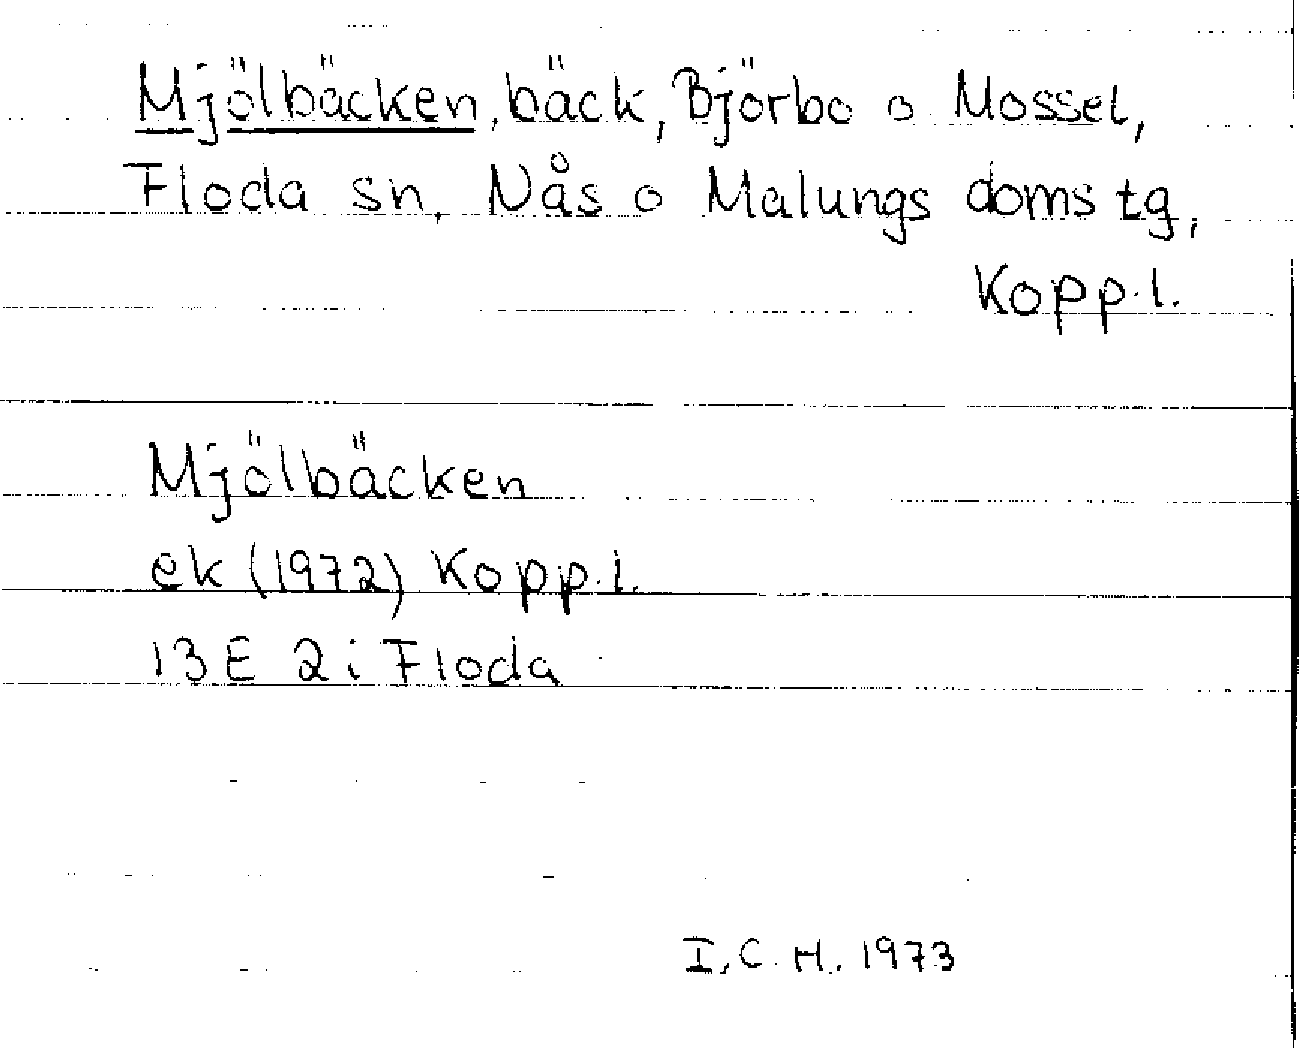 Mjölbäcken, bäck, Björbo o Mossel,
Floda sn, Nås o Malungs domstg,
Kopp.l.
Mjölbäcken
ek (1972) Kopp.l.
13E 2i Floda
I.C.H. 1973